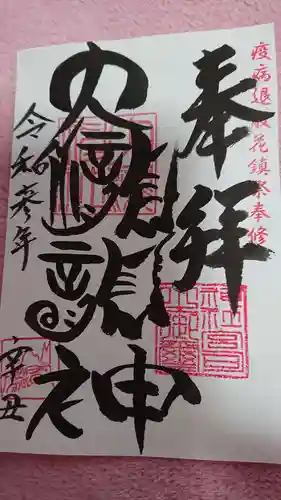 疫病退散花鎮祭奉修
奉拝
大龍龍神
令和参年
辛丑